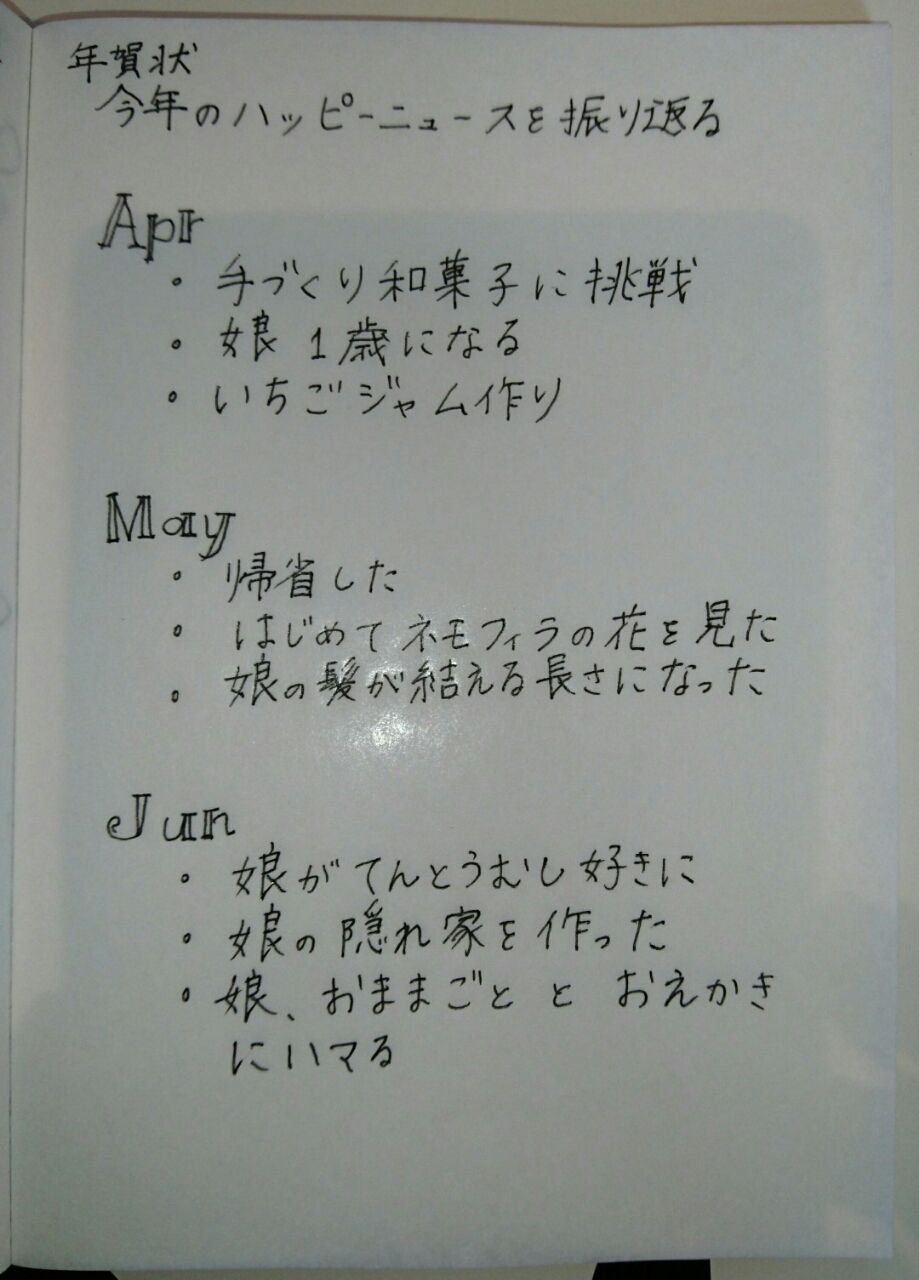 年賀状
今年のハッピーニュースを振り返る
Apr
・手づくり和菓子に挑戦
・娘 1歳になる
・いちごジャム作り
May
・帰省した
・はじめてネモフィラの花を見た
・娘の髪が結える長さになった
Jun
・娘がてんとうむし好きに
・娘の隠れ家を作った
・娘、おままごとと おえかき
にハマる